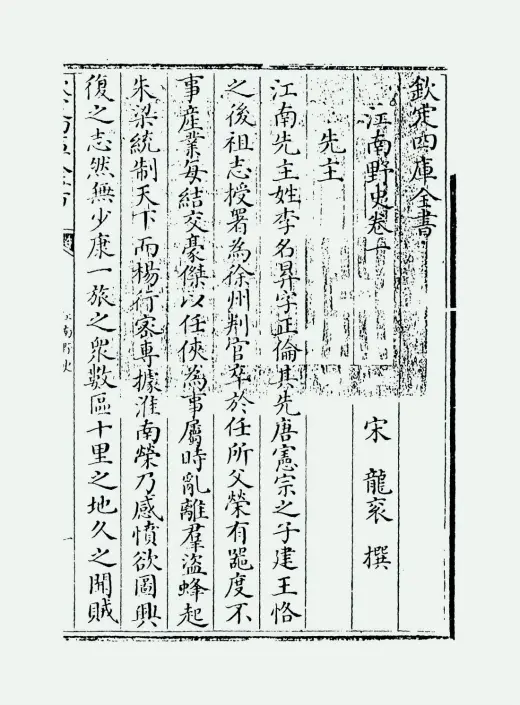 欽定四庫全書
江南野史卷一
宋 龍袞 撰
先主
江南先主姓李名昪字正倫其先唐憲宗之子建王恪
之後祖志授署為徐州判官卒於任所父榮有器度不
事產業每結交豪傑以任俠為事屬時亂離羣盜蜂起
朱梁統制天下而楊行密專據淮南榮乃感憤欲圖興
復之志然無少康一旅之衆數區十里之地久之聞賊